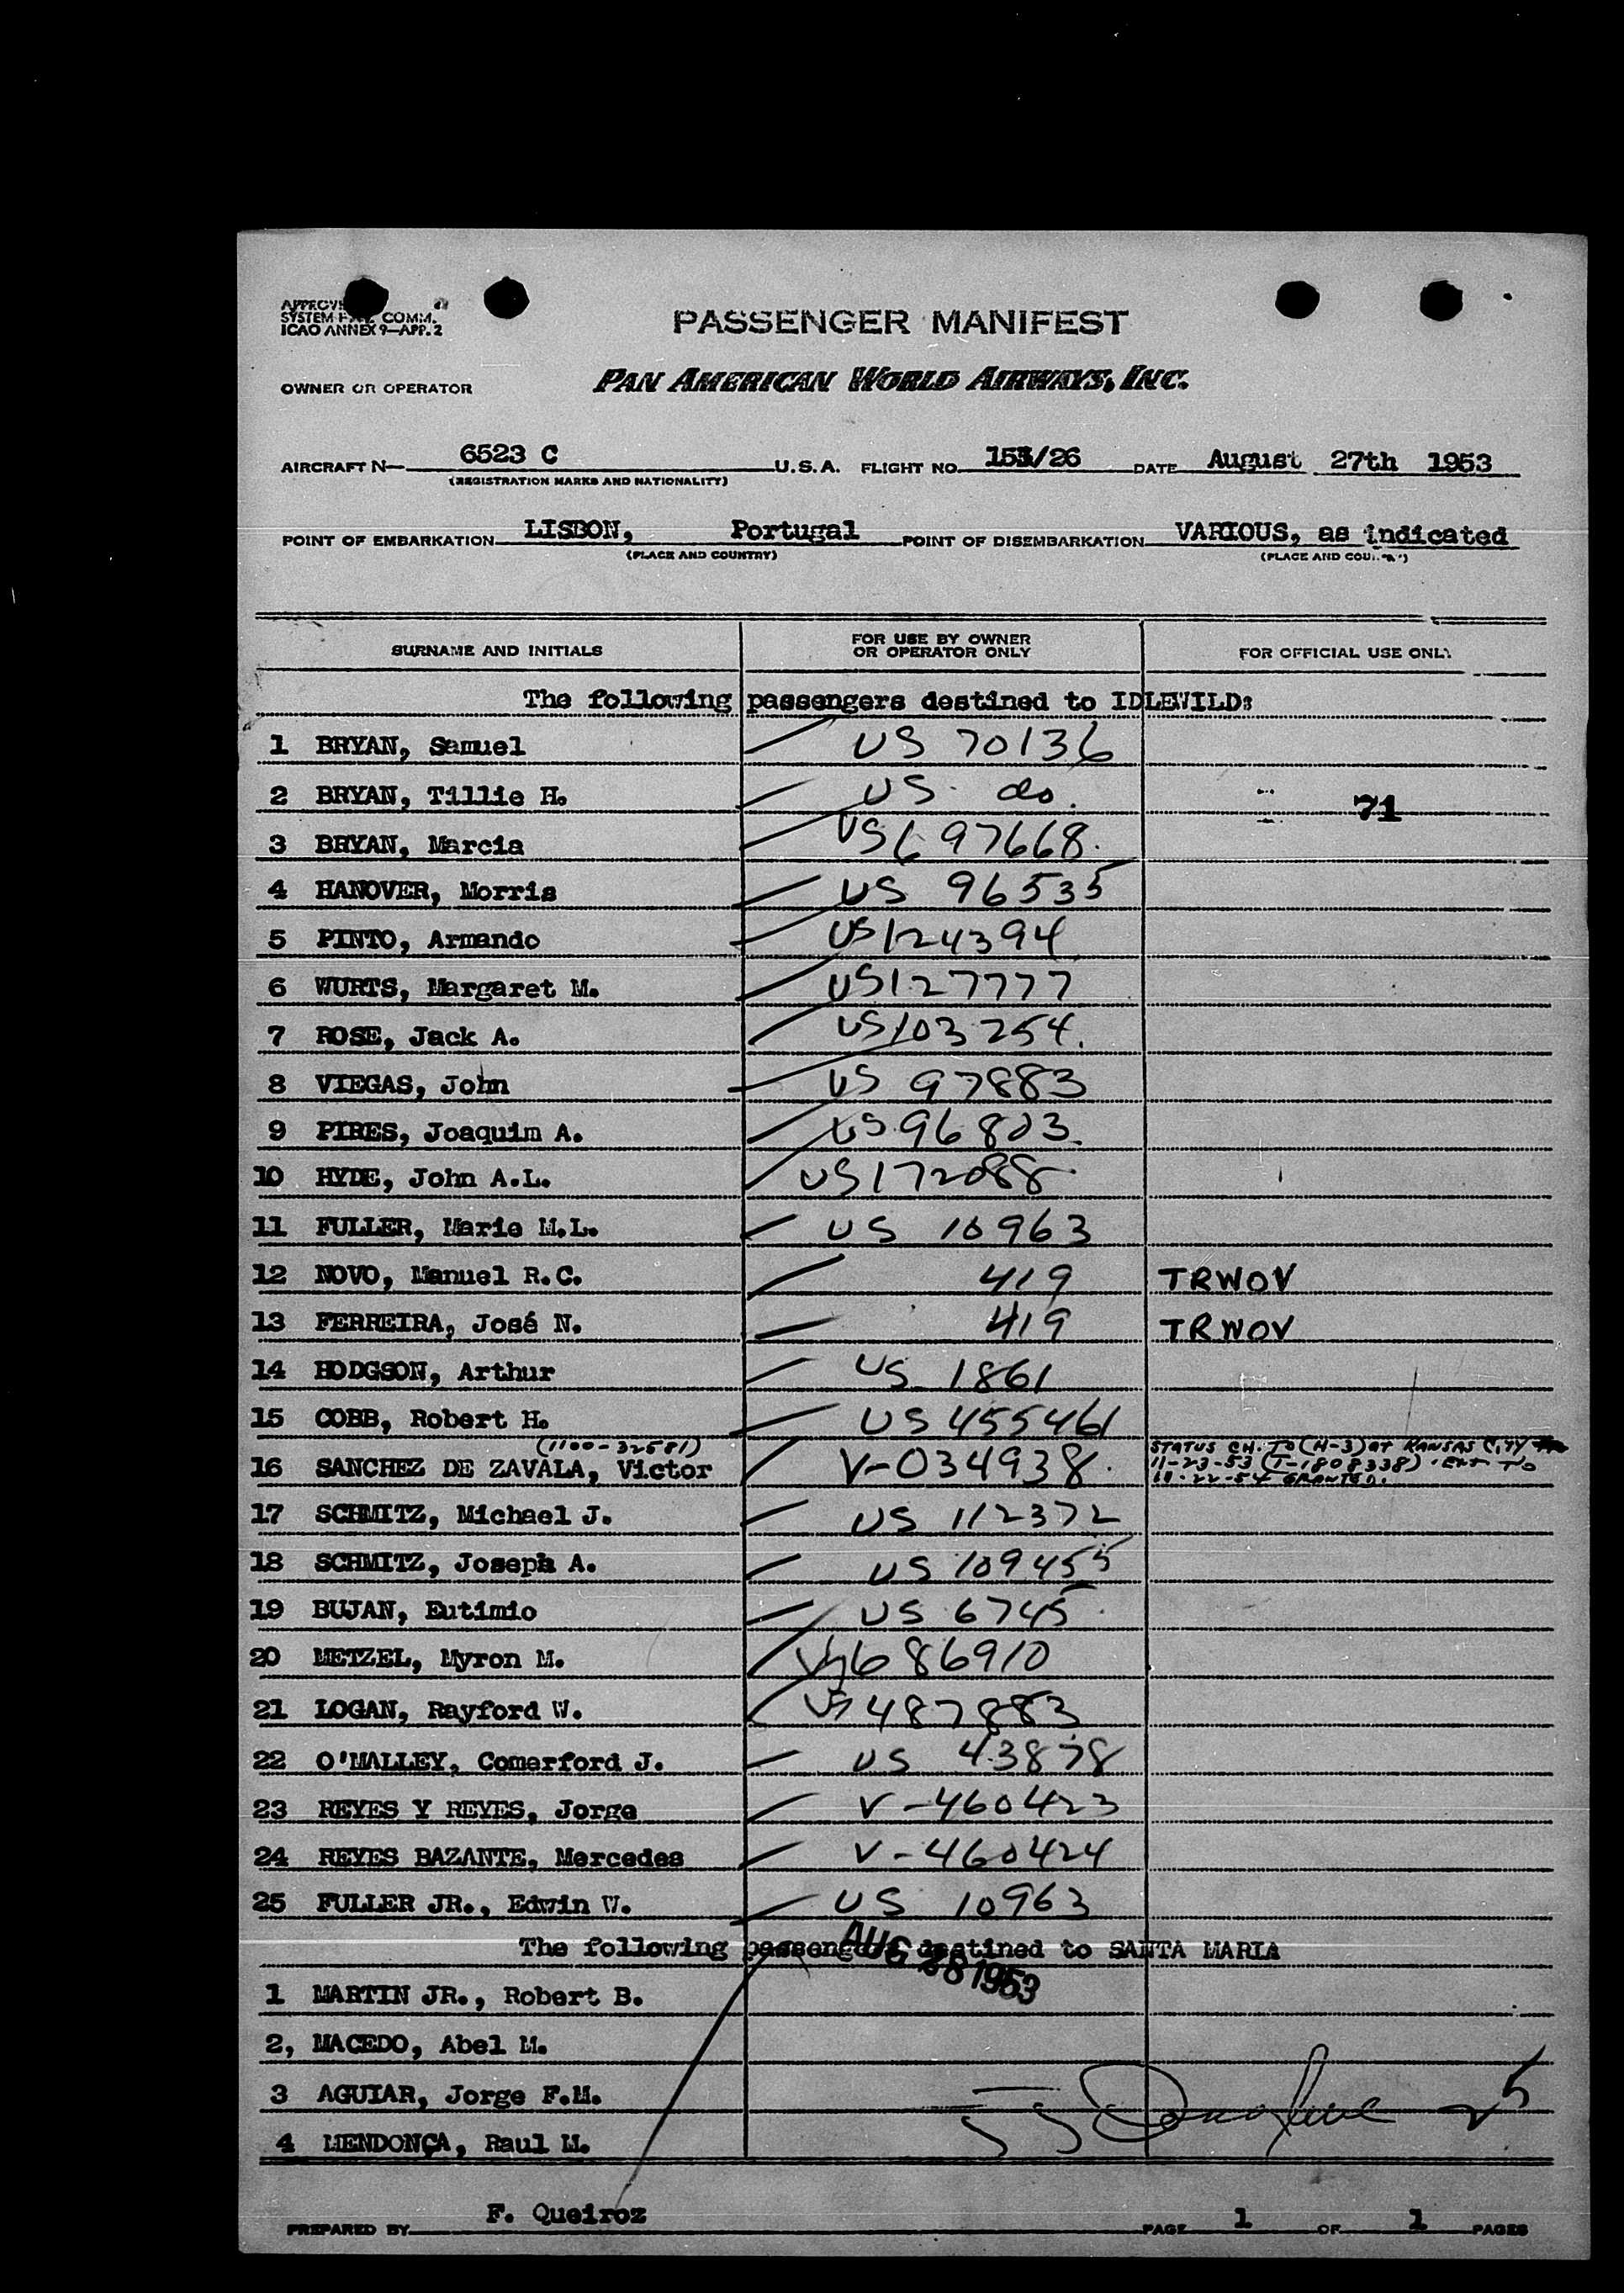 SYSTEM COMM.
ICAO ANNEX 9—APP. 2
PASSENGER MANIFEST
OWNER OR OPERATOR PAN AMERICAN WORLD AIRWAYS, INC.
AIRCRAFT N— 6523 C U.S.A. FLIGHT NO. /26 DATE August 27th 1953
(REGISTRATION MARKS AND NATIONALITY)
POINT OF EMBARKATION LISBON, Portugal POINT OF DISEMBARKATION VARIOUS, as indicated
(PLACE AND COUNTRY) (PLACE AND
SURNAME AND INITIALS FOR USE BY OWNER OR OPERATOR ONLY FOR OFFICIAL USE ONLY
The following passengers destined to IDLEWILD:
1 BRYAN, Samuel US 70136
2 BRYAN, Tillie H. US do. 71
3 BRYAN, Marcia US 697668.
4 HANOVER, Morris US 96535
5 PINTO, Armando US 124394
6 WURTS, Margaret M. US 127777
7 ROSE, Jack A. US 103254.
8 VIEGAS, John US 97883
9 PIRES, Joaquim A. US 96803.
10 HYDE, John A.L. US 172088
11 FULLER, Marie M.L. US 10963
12 NOVO, Manuel R.C. 419 TRWOV
13 FERREIRA, José N. 419 TRWOV
14 HODGSON, Arthur US 1861
15 COBB, Robert H. US 455461
(1100-32581) STATUS CH. TO (H-3) AT KANSAS CITY
16 SANCHEZ DE ZAVALA, Victor V-034938. 11-23-53 (T-1808338) EXT TO
11-22-54 GRANTED.
17 SCHMITZ, Michael J. US 112372
18 SCHMITZ, Joseph A. US 109455
19 BUJAN, Eutimio US 6745
20 METZEL, Myron M. US 686910
21 LOGAN, Rayford W. US 487883
22 O'MALLEY, Comerford J. US 43878
23 REYES Y REYES, Jorge V-460423
24 REYES BAZANTE, Mercedes V-460424
25 FULLER JR., Edwin W. US 10963
The following passengers destined to SANTA MARIA
AUG 28 1953
1 MARTIN JR., Robert B.
2, MACEDO, Abel M.
3 AGUIAR, Jorge F.M. 25
4 MENDONÇA, Raul M.
PREPARED BY F. Queiroz PAGE 1 OF 1 PAGES